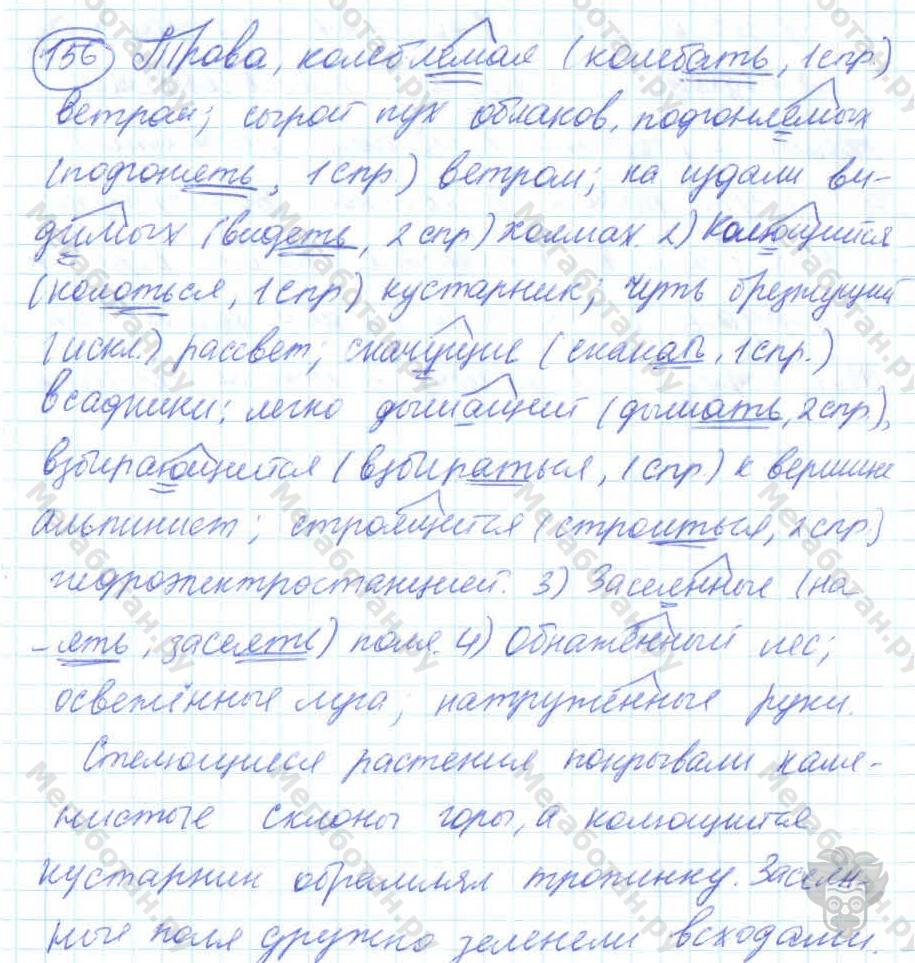 156 Трава, колеблемая (колебать, 1 спр.)
ветром; сырой пух облаков, подгоняемых
(подгонять, 1 спр.) ветром; на издали ви-
димых (видеть, 2 спр) холмах. 2) Колющийся
(колоться, 1 спр) кустарник; чуть брезжущий
(искл.) рассвет; скачущие (скакать, 1 спр.)
всадники; легко дышащий (дышать, 2 спр.),
взбирающийся (взбираться, 1 спр.) к вершине
альпинист; строящейся (строиться, 2 спр.)
гидроэлектростанцией. 3) Засеянные (на
-ять, засеять) поля. 4) Обнажённый лес;
освежённые луга; натружённые руки.
Стелющиеся растения покрывали каме-
нистые склоны горы, а колющийся
кустарник обрамлял тропинку. Засеян-
ные поля дружно зеленели всходами.
Мегаботан.ру